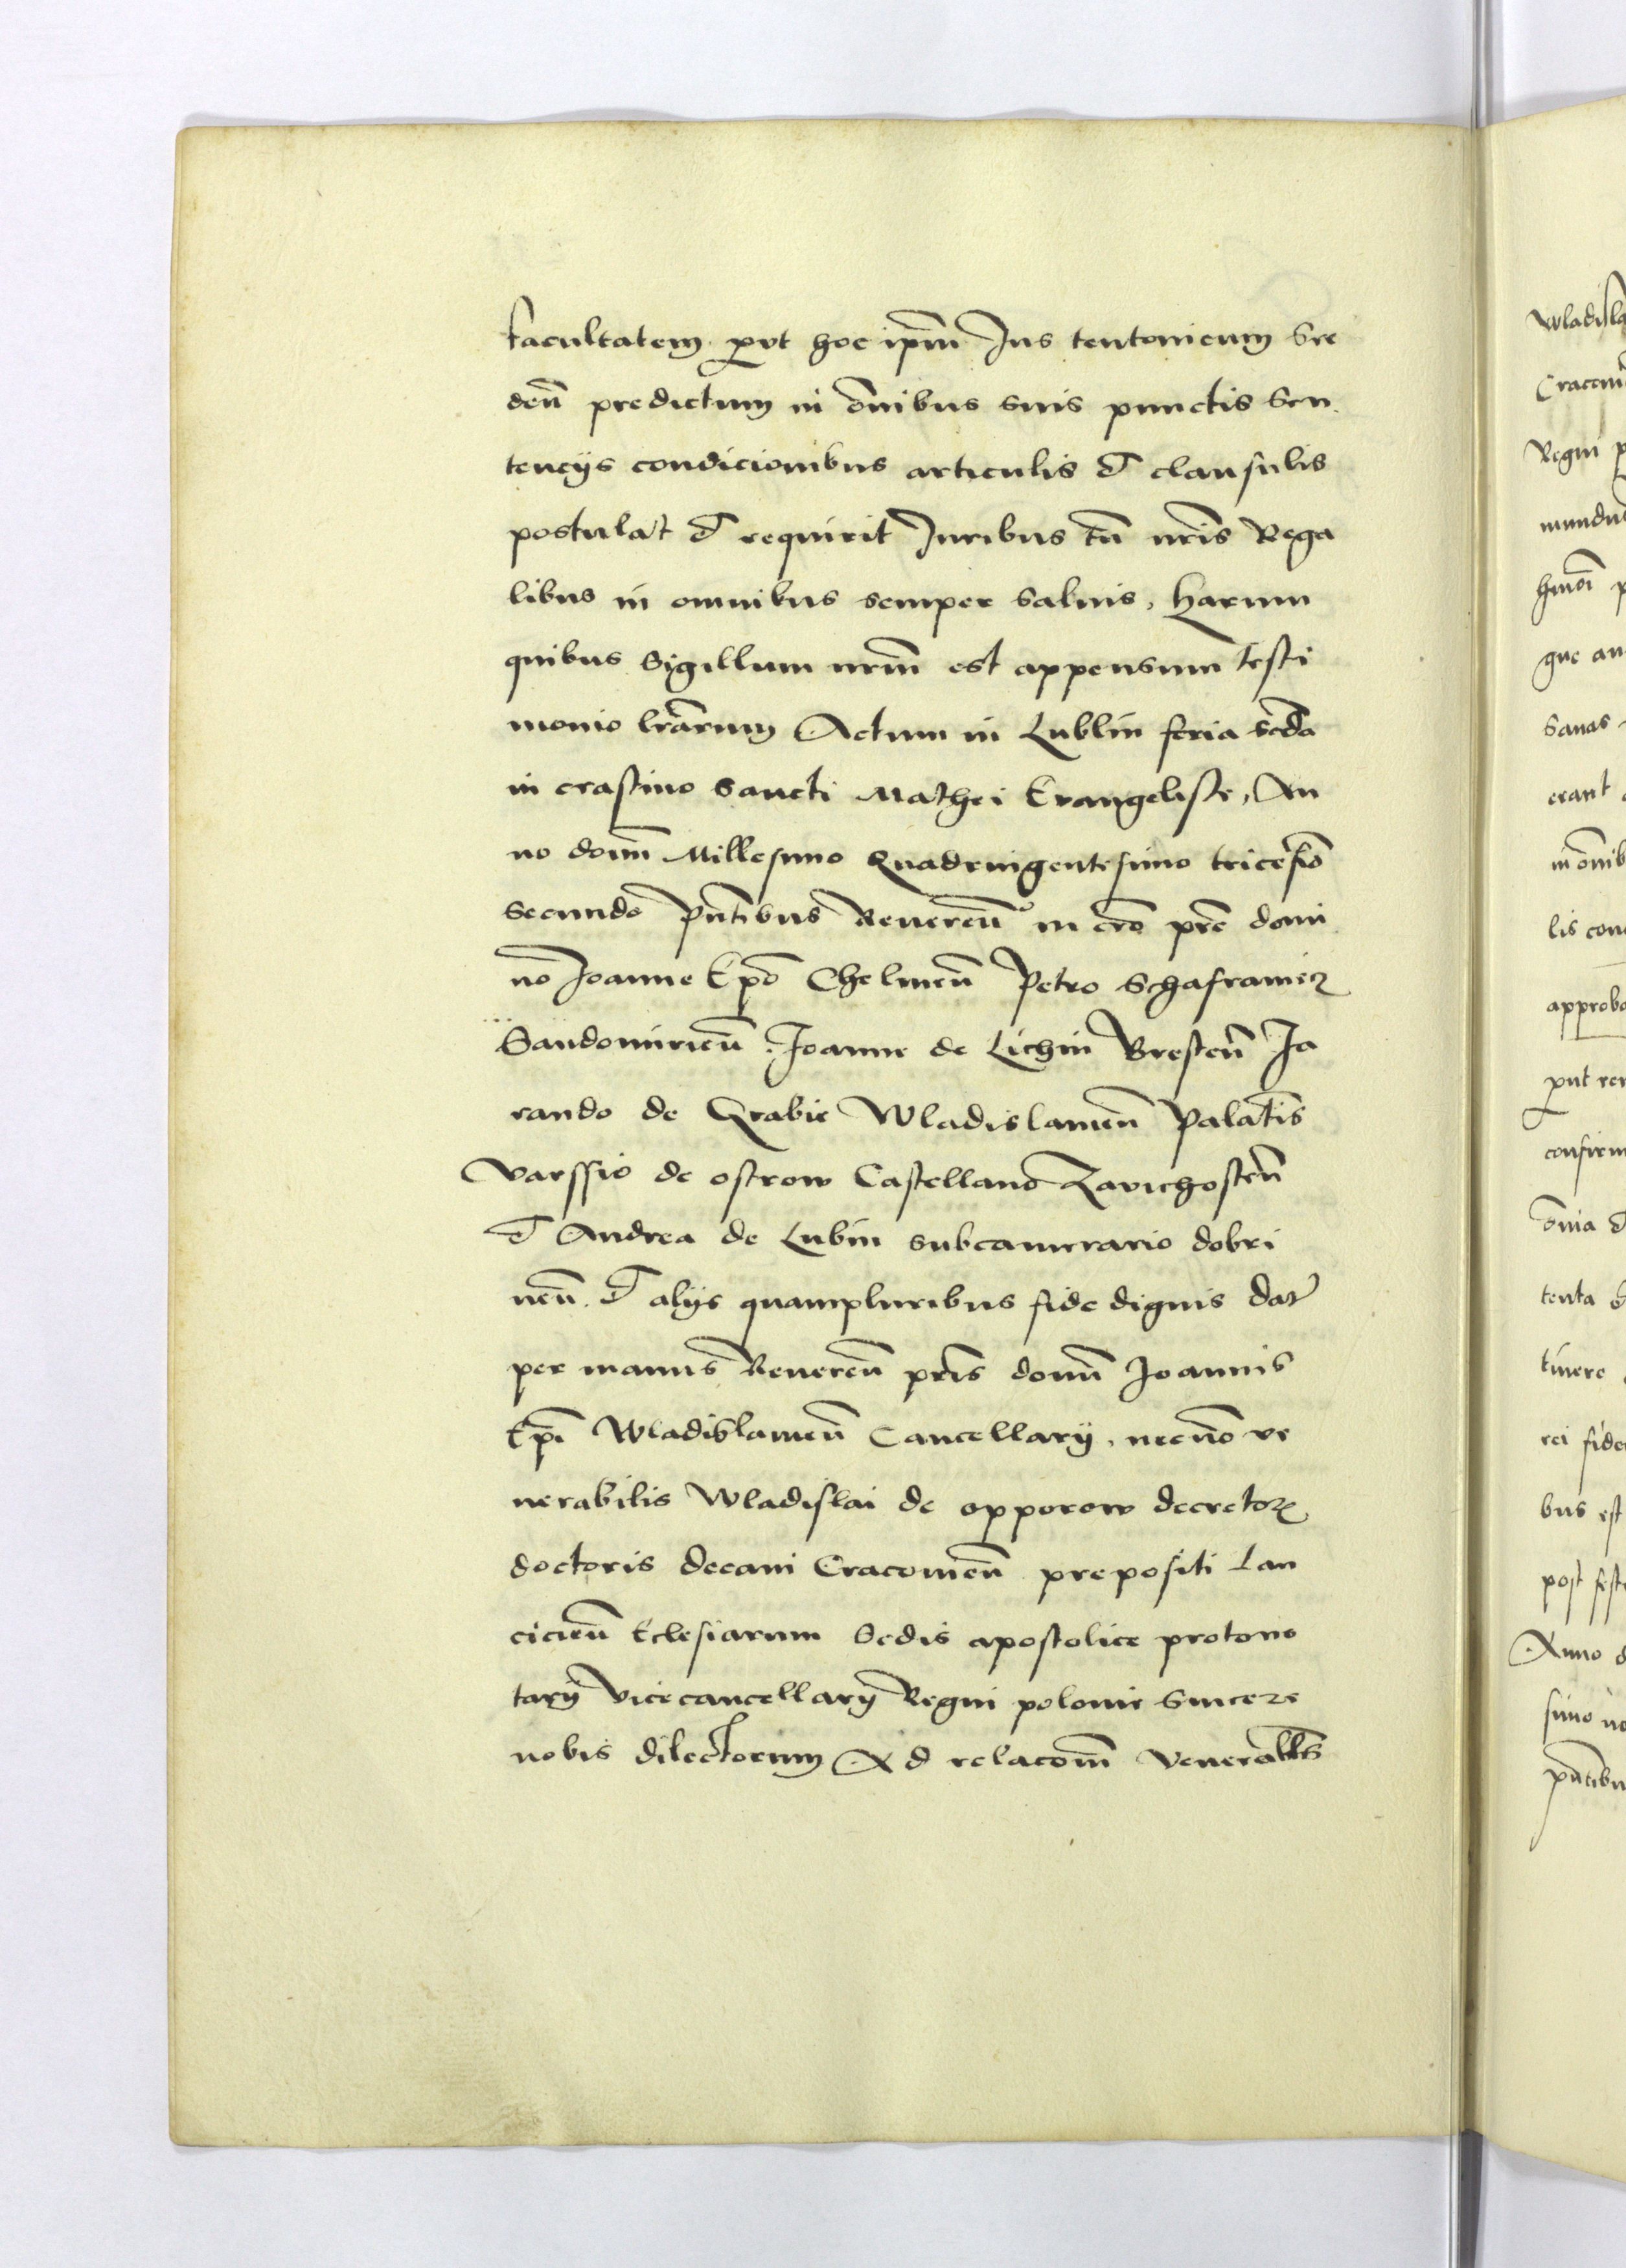 facultatem put hoc ipm̄ Jus teutonicum Sre
den̄ predictum in om̄ibus suis punctis Sen
tencijs condicionibus articulis et clausulis
postulat et requirit Juribus tn̄ nr̄is Rega
libus in omnibus semper saluis, Harum
quibus Sigillum nrm̄ est appensum testi
monio lrārum Actum in Lublin feria scd̄a
in crastino Sancti Mathei Evangeliste, An
no domī Millesimo Quadringentesimo tricesīo
secundo pn̄tibus Reueren̄ in cro pr̄e domi
no Joanne Ep̄o Chelmen̄ Petro Schafraniecz
Sandomirien̄ . Joanne de Lichin Bresten̄ Ja
rando de Grabie Wladislauien̄ Palatīs
Varssio de ostrow Castellano Zavichosten̄
et Andrea de Lubin subcamerario dobri
nen̄ . et alijs quampluribus fide dignis dat̄
per manus Reueren̄ pr̄is domī Joannis
Ep̄i Wladislauien̄ Cancellarij . necnō ve
nerabilis Wladislai de opporow decretoꝝ
doctoris decani Cracouien̄ . prepositi Lan
cicien̄ Eclesiarum Sedis apostolice protono
tarÿ Vicecancellarÿ Regni polonie Sincere
nobis dilectorum Ad relacom̄ Venerabīlis
Wladisla
Cracouiē
Regni p
mundu
hmōi p
que au
sanas
erant
in om̄ib
lis con
approbo
put re
confirm
om̄ia et
tenta
tinere
rei fide
bus est
post fest
Anno d
simo no
pn̄tibu